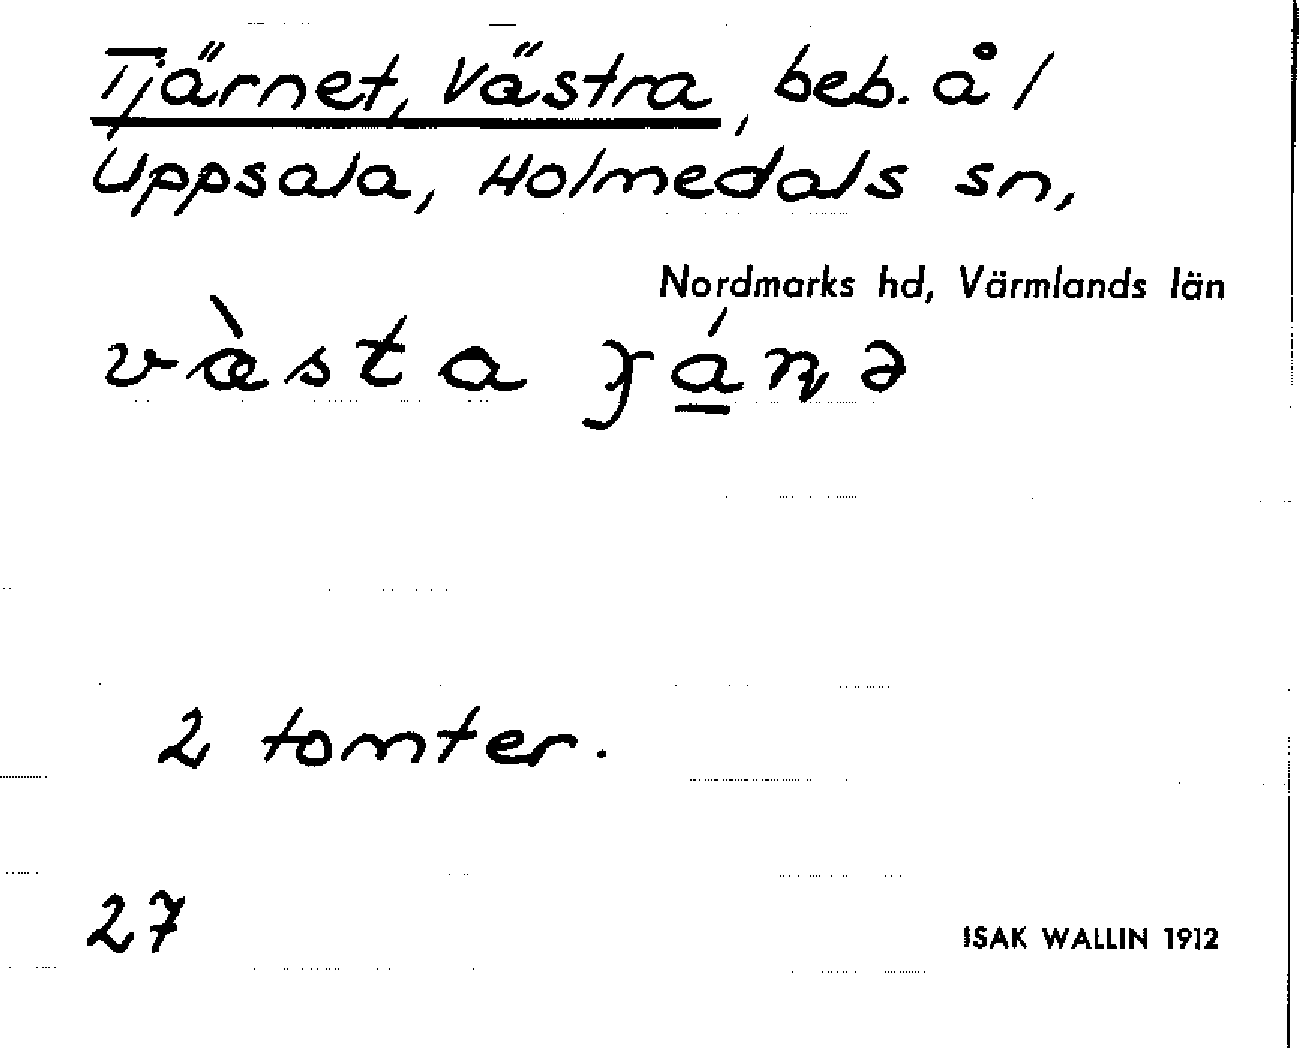 Tjärnet, Västra, beb. å /
Uppsala, Holmedals sn,
Nordmarks hd, Värmlands län
væ̀sta
2 tomter.
27
ISAK WALLIN 1912